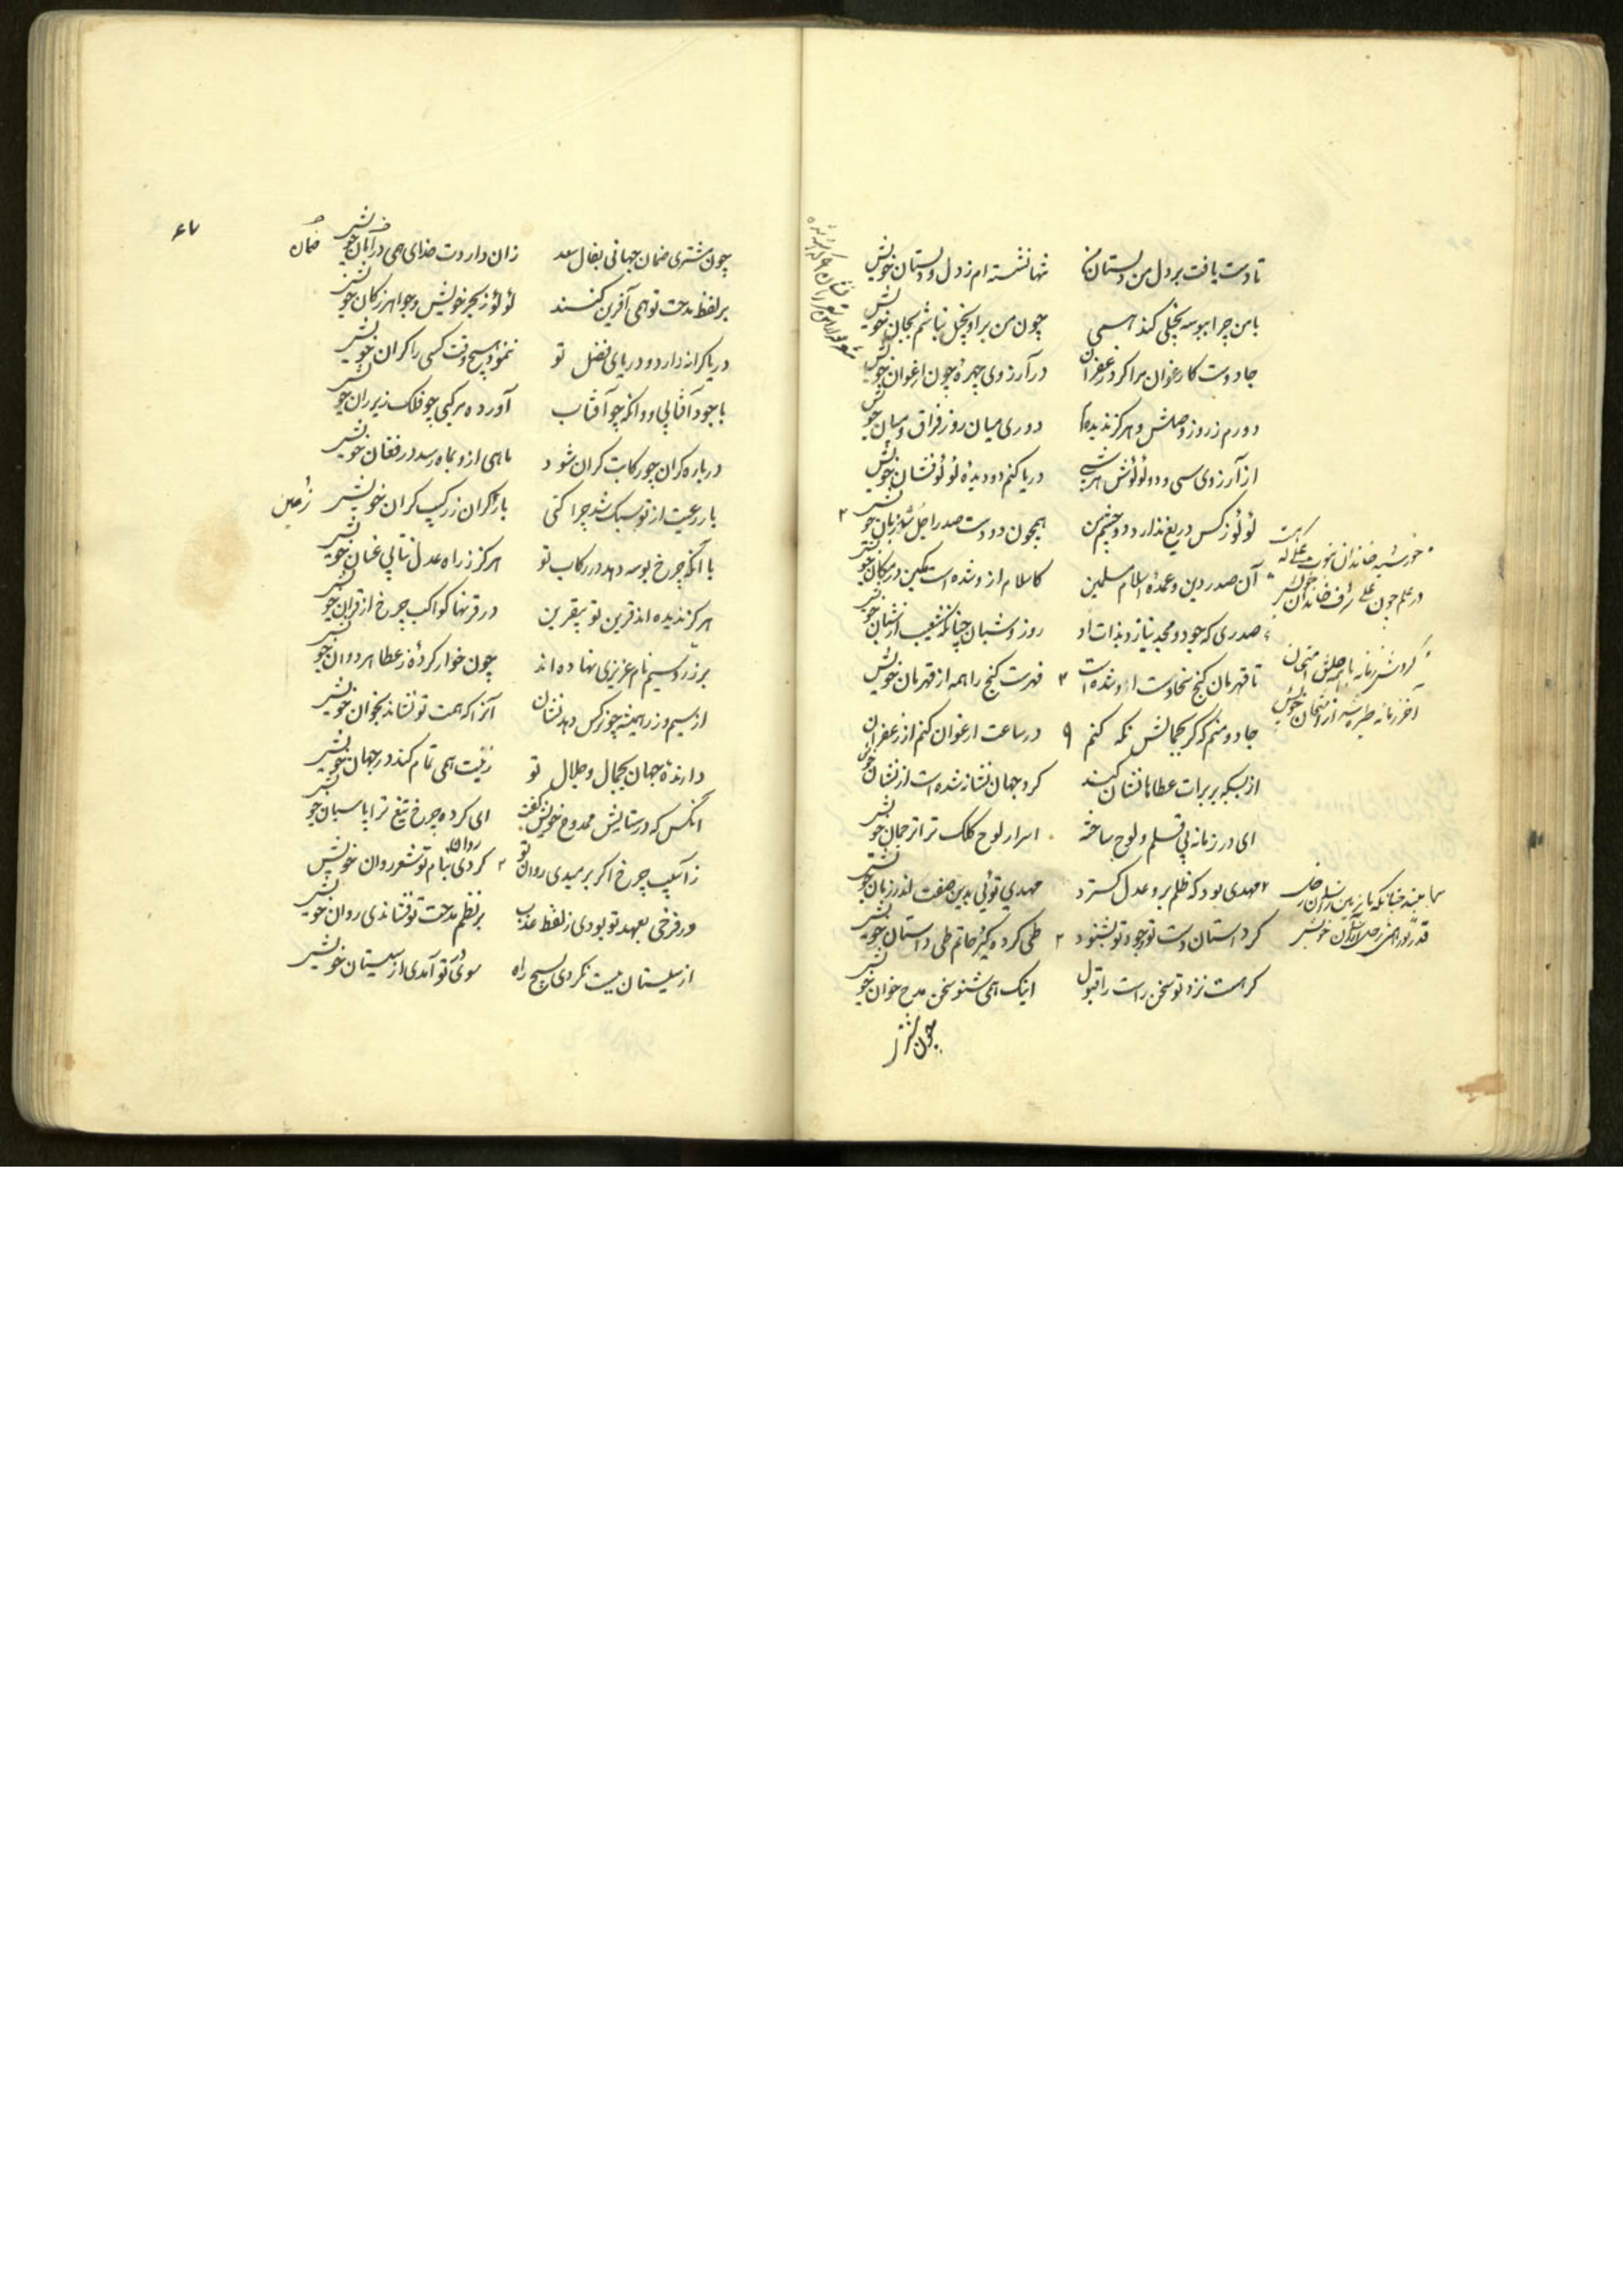 تا دست یافت بر دل من دلستان من تنها نشسته‌ام ز دل و دلستان خویش
با من چرا ببوسه بخیلی کند همی چون من برو بخیل نباشم بجان خویش
جادوست کارغوان مرا کرد زعفران در آرزوی چهرهٔ چون ارغوان خویش
دورم ز روز وصلش و هرگز ندیده‌ام دوری میان روز فراق و میان خویش
از آرزوی سی و دو لؤلؤش هر شبی دریا کنم دو دیدهٔ لؤلؤفشان خویش
لؤلؤ ز کس دریغ ندارد دو چشم من همچون دو دست صدر اجل زبان خویش
آن صدر دین و عمدهٔ اسلام مسلمین کاسلام ازو شده است مکین در مکان خویش
صدری که جود و مجد بنازد بذات او روز و شبان چنانکه شعیب از شبان خویش
تا قهرمان گنج سخا دست او شده است فهرست گنج را همه از قهرمان خویش
جادو منم که گر بجمالش نگه کنم در ساعت ارغوان کنم از زعفران
از بسکه بر برات عطاها نشان کند گرد جهان نشانه شده است از نشان خویش
ای در زمانه بی قلم و لوح ساخته اسرار لوح کلک ترا ترجمان خویش
مهدی بود که ظلم برد عدل گسترد مهدی توئی بدین صفت اندر زمان خویش
گر داستان دست تو و جود تو بشنود طی کرد و گیر حاتم طی داستان خویش
گر هست نزد تو سخن راست را قبول اینک همی شنو سخن مدح خوان خویش
چون مشتری
خورشید خاندان نبوت علی که هست
در علم چون علی شرف خاندان خویش
گردش زمانه با همه خلق امتحان
آخر زمانه طیره شد از امتحان خویش
۶۷
چون مشتری ضمان جهانی بفال سعد زان داردت خدای همی در امان خویش
ضمان
بر لفظ مدحت تو همی آفرین کنند لؤلؤ ز بحر خویش و جواهر ز کان خویش
دریا کرانه دارد و دریای فضل تو ننمود هیچ وقت کسی را کران خویش
با جود آفتابی و وانگه چو آفتاب آورده مرکبی چو فلک زیر ران خویش
در باره گران چو رکابت گران شود ماهی ازو بماه رسد در فغان خویش
بار رعیت از تو سبک شد چرا کنی بار گران ز رکیب گران خویش
با آنکه چرخ بوسه دهد در رکاب تو هرگز ز راه عدل نتابی عنان خویش
هرگز ندیده‌اند قرین تو بیقرین در قرنها کواکب چرخ از قران خویش
بر زر و سیم نام عزیزی نهاده‌اند چون خوار کردهٔ ز عطا هر دوان خویش
از سیم و زر همیشه چو نرگس دهد نشان آنرا که همت تو نشاند بخوان خویش
دارندهٔ جهان بجمال و جلال تو زینت همی تمام کند در جهان خویش
آنکس که در ستایش ممدوح خویش گفت ای کرده چرخ تیغ ترا پاسبان خویش
ز آسیب چرخ اگر برمیدی روان تو کردی بنام تو شعر روان خویش
ور فرخی بعهد تو بودی ز لفظ عذب بر نظم مدحت تو فشاندی روان خویش
از سیستان ببست نکردی بسیج راه سوی تو آمدی از سیستان خویش